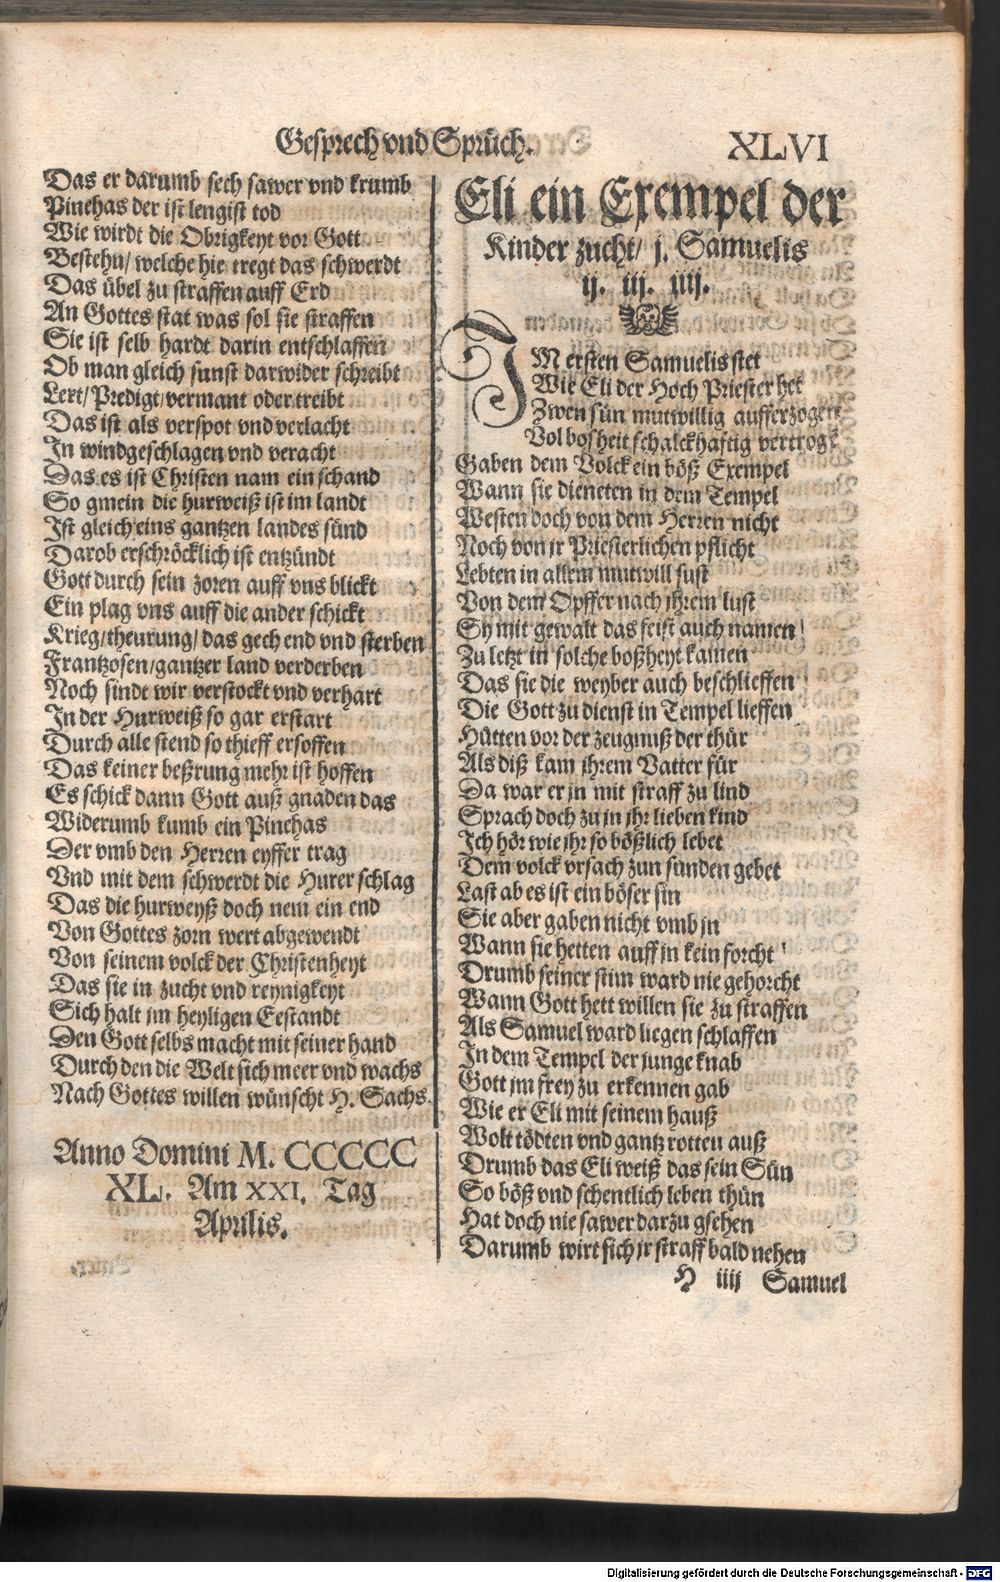 Gesprech vnd Sprüch. XLVI
Das er darumb sech sawer vnd krumb
Pinehas der ist lengist tod
Wie wirdt die Obrigkeyt vor Gott
Bestehn/ welche hie tregt das schwerdt
Das übel zu straffen auff Erd
An Gottes stat was sol sie straffen
Sie ist selb hardt darin entschlaffen
Ob man gleich sunst darwider schreibt
Lert/ Predigt/ vermant oder treibt
Das ist als verspot vnd verlacht
In windgeschlagen vnd veracht
Das es ist Christen nam ein schand
So gmein die hurweiß ist im landt
Ist gleich eins gantzen landes sünd
Darob erschröcklich ist entzündt
Gott durch sein zoren auff vns blickt
Ein plag vns auff die ander schickt
Krieg/ theurung/ das gech end vnd sterben
Frantzosen/ gantzer land verderben
Noch sindt wir verstockt vnd verhart
In der Hurweiß so gar erstart
Durch alle stend so thieff ersoffen
Das keiner beßrung mehr ist hoffen
Es schick dann Gott auß gnaden das
Widerumb kumb ein Pinehas
Der vmb den Herren eyffer trag
Vnd mit dem schwerdt die Hurer schlag
Das die hurweyß doch nem ein end
Von Gottes zorn wert abgewendt
Von seinem volck der Christenheyt
Das sie in zucht vnd reynigkeyt
Sich halt jm heyligen Eestandt
Den Gott selbs macht mit seiner hand
Durch den die Welt sich meer vnd wachs
Nach Gottes willen wünscht H. Sachs.
Anno Domini M. CCCCC
XL. Am XXI. Tag
Aprilis.
Eli ein Exempel der
Kinder zucht/ j. Samuelis
ij. iij. iiij.
IM ersten Samuelis stet
Wie Eli der Hoch Priester het
Zwen sün mutwillig aufferzogen
Vol bosheit schalckhafftig vertrogē
Gaben dem Volck ein böß Exempel
Wann sie dieneten in dem Tempel
Westen doch von dem Herren nicht
Noch von jr Priesterlichen pflicht
Lebten in allem mutwill sust
Von dem Opffer nach jhrem lust
Sy mit gewalt das feist auch namen
Zu letzt in solche boßheyt kamen
Das sie die weyber auch beschlieffen
Die Gott zu dienst in Tempel lieffen
Hütten vor der zeugnuß der thür
Als diß kam jhrem Vatter für
Da war er jn mit straff zu lind
Sprach doch zu jn jhr lieben kind
Ich hör wie jhr so bößlich lebet
Dem volck vrsach zun sünden gebet
Last ab es ist ein böser sin
Sie aber gaben nicht vmb jn
Wann sie hetten auff jn kein forcht
Drumb seiner stim ward nie gehorcht
Wann Gott hett willen sie zu straffen
Als Samuel ward liegen schlaffen
In dem Tempel der junge knab
Gott jm frey zu erkennen gab
Wie er Eli mit seinem hauß
Wolt tödten vnd gantz rotten auß
Drumb das Eli weiß das sein Sün
So böß vnd schentlich leben thün
Hat doch nie sawer darzu gsehen
Darumb wirt sich jr straff bald nehen
H iiij Samuel
Digitalisierung gefördert durch die Deutsche Forschungsgemeinschaft - DFG